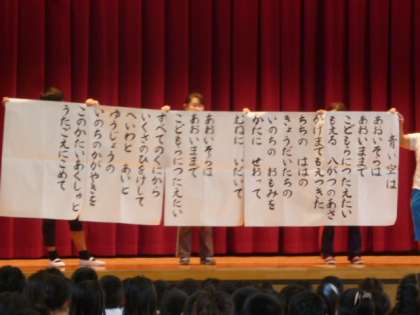 青い空は
あおいそらは
あおいままで
こどもらにつたえたい
もえる 八がつのあさ
かげまでもえつきた
ちちの ははの
きょうだいたちの
いのちの おもみを
かたに せおって
むねに いだいて
あおいそらは
あおいままで
こどもらにつたえたい
すべてのくにから
いくさのひをけして
へいわと あいと
ゆうじょうの
いのちのかがやきを
このかたいあくしゅと
うたごえにこめて